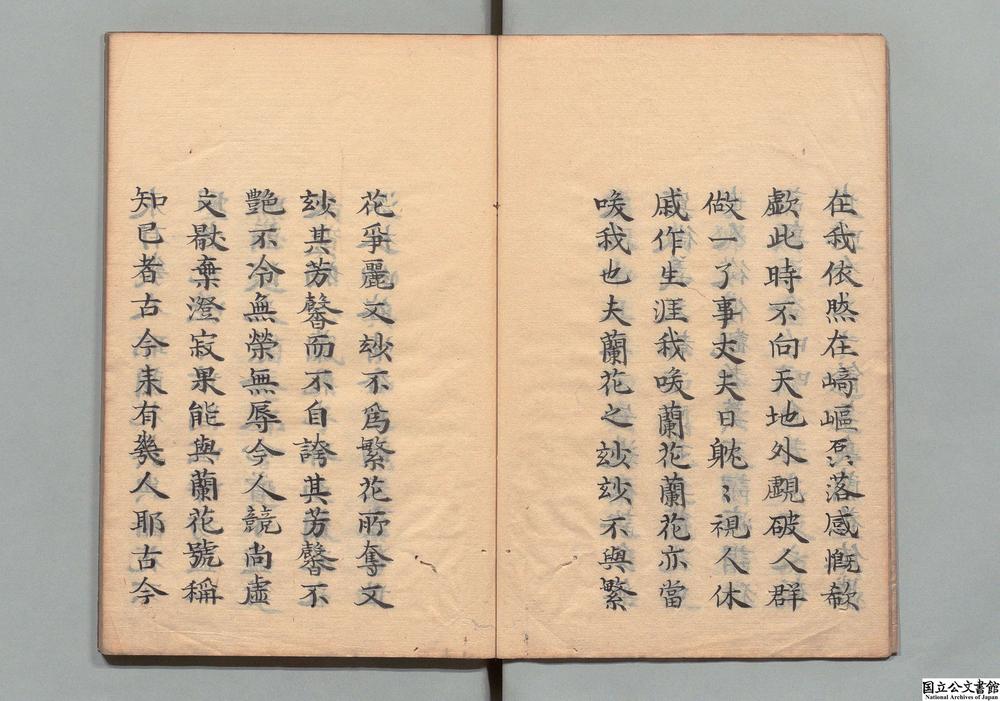 在我依然在﨑嶇磊落感慨欷
歔此時不向天地外覷破人群
做一了事丈夫日眈〻視人休
戚作生涯我唉蘭花蘭花亦當
唉我也夫蘭花之玅玅不與繁
花爭麗文玅不爲繁花所奪文
玅其芳馨而不自誇其芳馨不
艶不冷無榮無辱今人競尚虛
文歇棄澄寂果能與蘭花號稱
知己者古今来有幾人耶古今
国立公文書館
National Archives of Japan